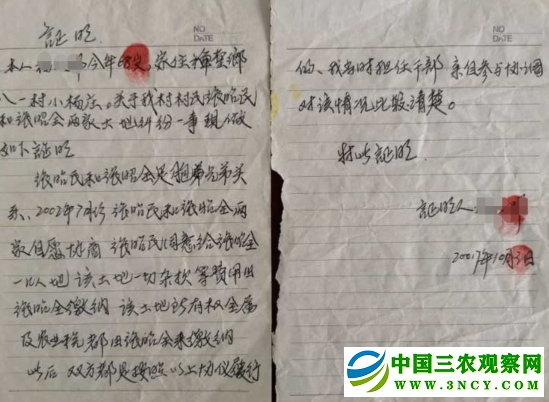 NO
DATE
証明
本人 今年68岁,家住 楚乡
八一村小杨庄。关于我村村民张哈民
和张哈会两家土地纠纷一事,现做
如下証明
张哈民和张哈会是胞弟兄弟关
系,2002年7月份 张哈民和张哈会两
家自愿协商 张哈民同意给张哈会
一人地 该土地一切杂款等费用由
张哈会缴纳 该土地所有权会属
及农业税都由张哈会来缴纳
此后 双方都是按照以上协仪履行
NO
DATE
的、我当时担任干部 亲自参与协调
对该情况比较清楚。
特此証明
証明人
10月3日
中国三农观察网
WWW.3NCY.COM